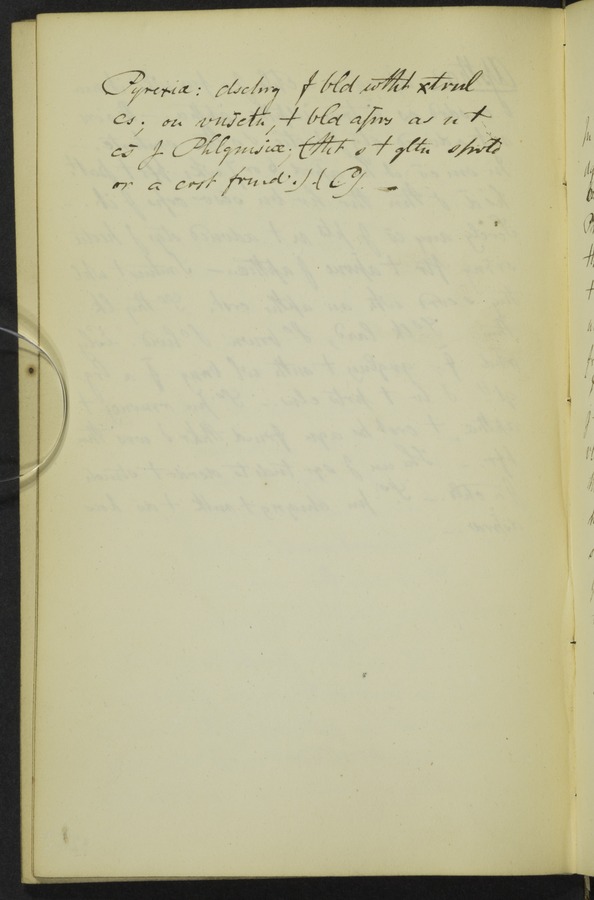 Pyrexia: dschrg f bld witht xtrnl
cs; on vnsctn, t bld apprs as n t
cs f Phlgmsiæ; (tht s t gltn sprts
or a crst frmd:) (C).